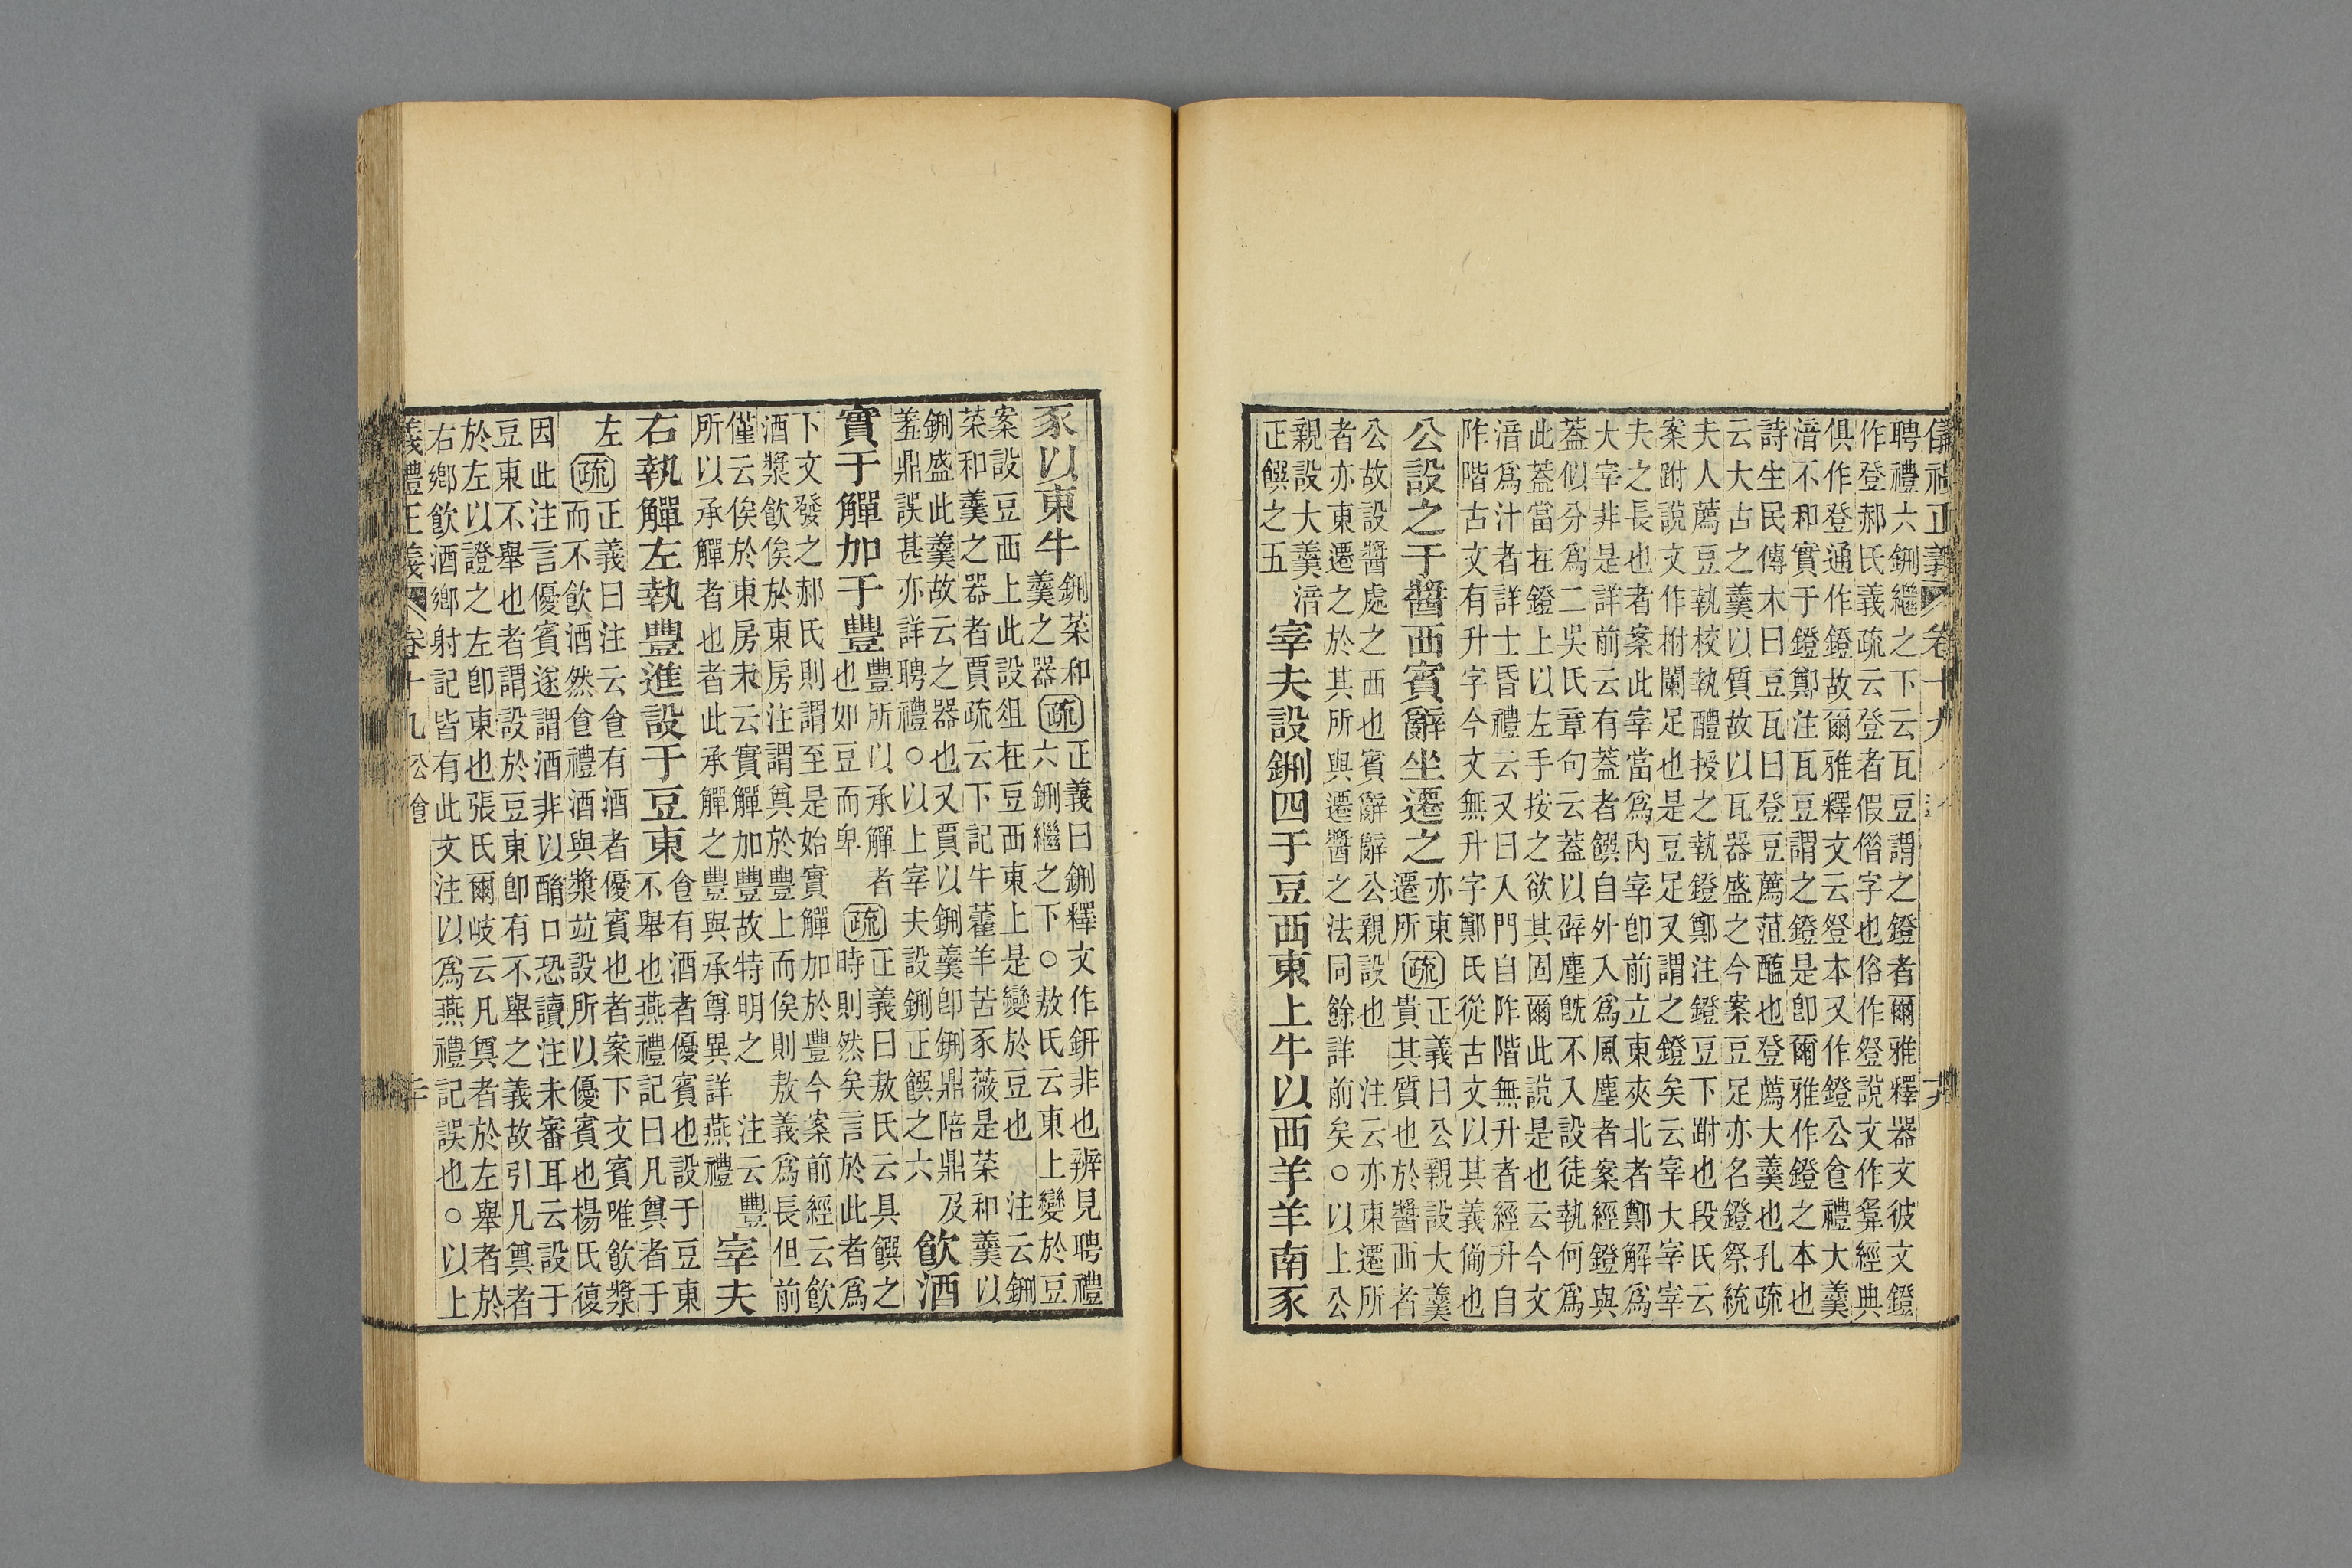 儀禮正義 卷十九
聘禮六鉶繼之下云瓦豆謂之鐙者爾雅釋器文彼文鐙
作登郝氏義疏云登者假借字也俗作豋說文作𢍪經典
俱作登通作鐙故爾雅釋文云豋本又作鐙公食禮大羹
湆不和實于鐙鄭注瓦豆謂之鐙是卽爾雅作鐙之本也
詩生民傳木曰豆瓦曰登豆薦菹醢也登薦大羹也孔疏
云大古之羹以質故以瓦器盛之今案豆足亦名鐙祭統
夫人薦豆執校執醴授之執鐙鄭注鐙豆下跗也段氏云
案跗說文作柎闌足也是豆足又謂之鐙矣云宰大宰宰
夫之長也者案此宰當爲內宰卽前立東夾北者鄭解爲
大宰非是詳前云有蓋者饌自外入爲風塵者案經鐙與
蓋似分爲二吳氏章句云蓋以辟塵旣不入設徒執何爲
此蓋當在鐙上以左手按之欲其固爾此說是也云今文
湆爲汁者詳士昏禮云又曰入門自阼階無升者經升自
阼階古文有升字今文無升字鄭氏從古文以其義備也
公設之于醬西賓辭坐遷之 亦東遷所 疏 正義曰公親設大羹貴其質也於醬西者
公故設醬處之西也賓辭辭公親設也 注云亦東遷所
者亦東遷之於其所與遷醬之法同餘詳前矣○以上公
親設大羹湆正饌之五 宰夫設鉶四于豆西東上牛以西羊羊南豕
豕以東牛 鉶菜和羹之器 疏 正義曰鉶釋文作鈃非也辨見聘禮六鉶繼之下○敖氏云東上變於豆
案設豆西上此設俎在豆西東上是變於豆也 注云鉶
菜和羹之器者賈疏云下記牛藿羊苦豕薇是菜和羹以
鉶盛此羹故云之器也又賈以鉶羹卽鉶鼎陪鼎及
羞鼎誤甚亦詳聘禮○以上宰夫設鉶正饌之六 飲酒
實于觶加于豐 豐所以承觶者也如豆而卑 疏 正義曰敖氏云具饌之時則然矣言於此者爲
下文發之郝氏則謂至是始實觶加於豐今案前經云飲
酒漿飲俟於東房注謂奠於豐上而俟則敖義爲長但前
僅云俟於東房未云實觶加豐故特明之 注云豐
所以承觶者也者此承觶之豐與承尊異詳燕禮 宰夫
右執觶左執豐進設于豆東 食有酒者優賓也設于豆東不舉也燕禮記曰凡奠者于
左 疏 正義曰注云食有酒者優賓也者案下文賓唯飲漿而不飲酒然食禮酒與漿竝設所以優賓也楊氏復
因此注言優賓遂謂酒非以酳口恐讀注未審耳云設于
豆東不舉也者謂設於豆東卽有不舉之義故引凡奠者
於左以證之左卽東也張氏爾岐云凡奠者於左舉者於
右鄉飲酒鄉射記皆有此文注以爲燕禮記誤也○以上
禮正義 卷十九